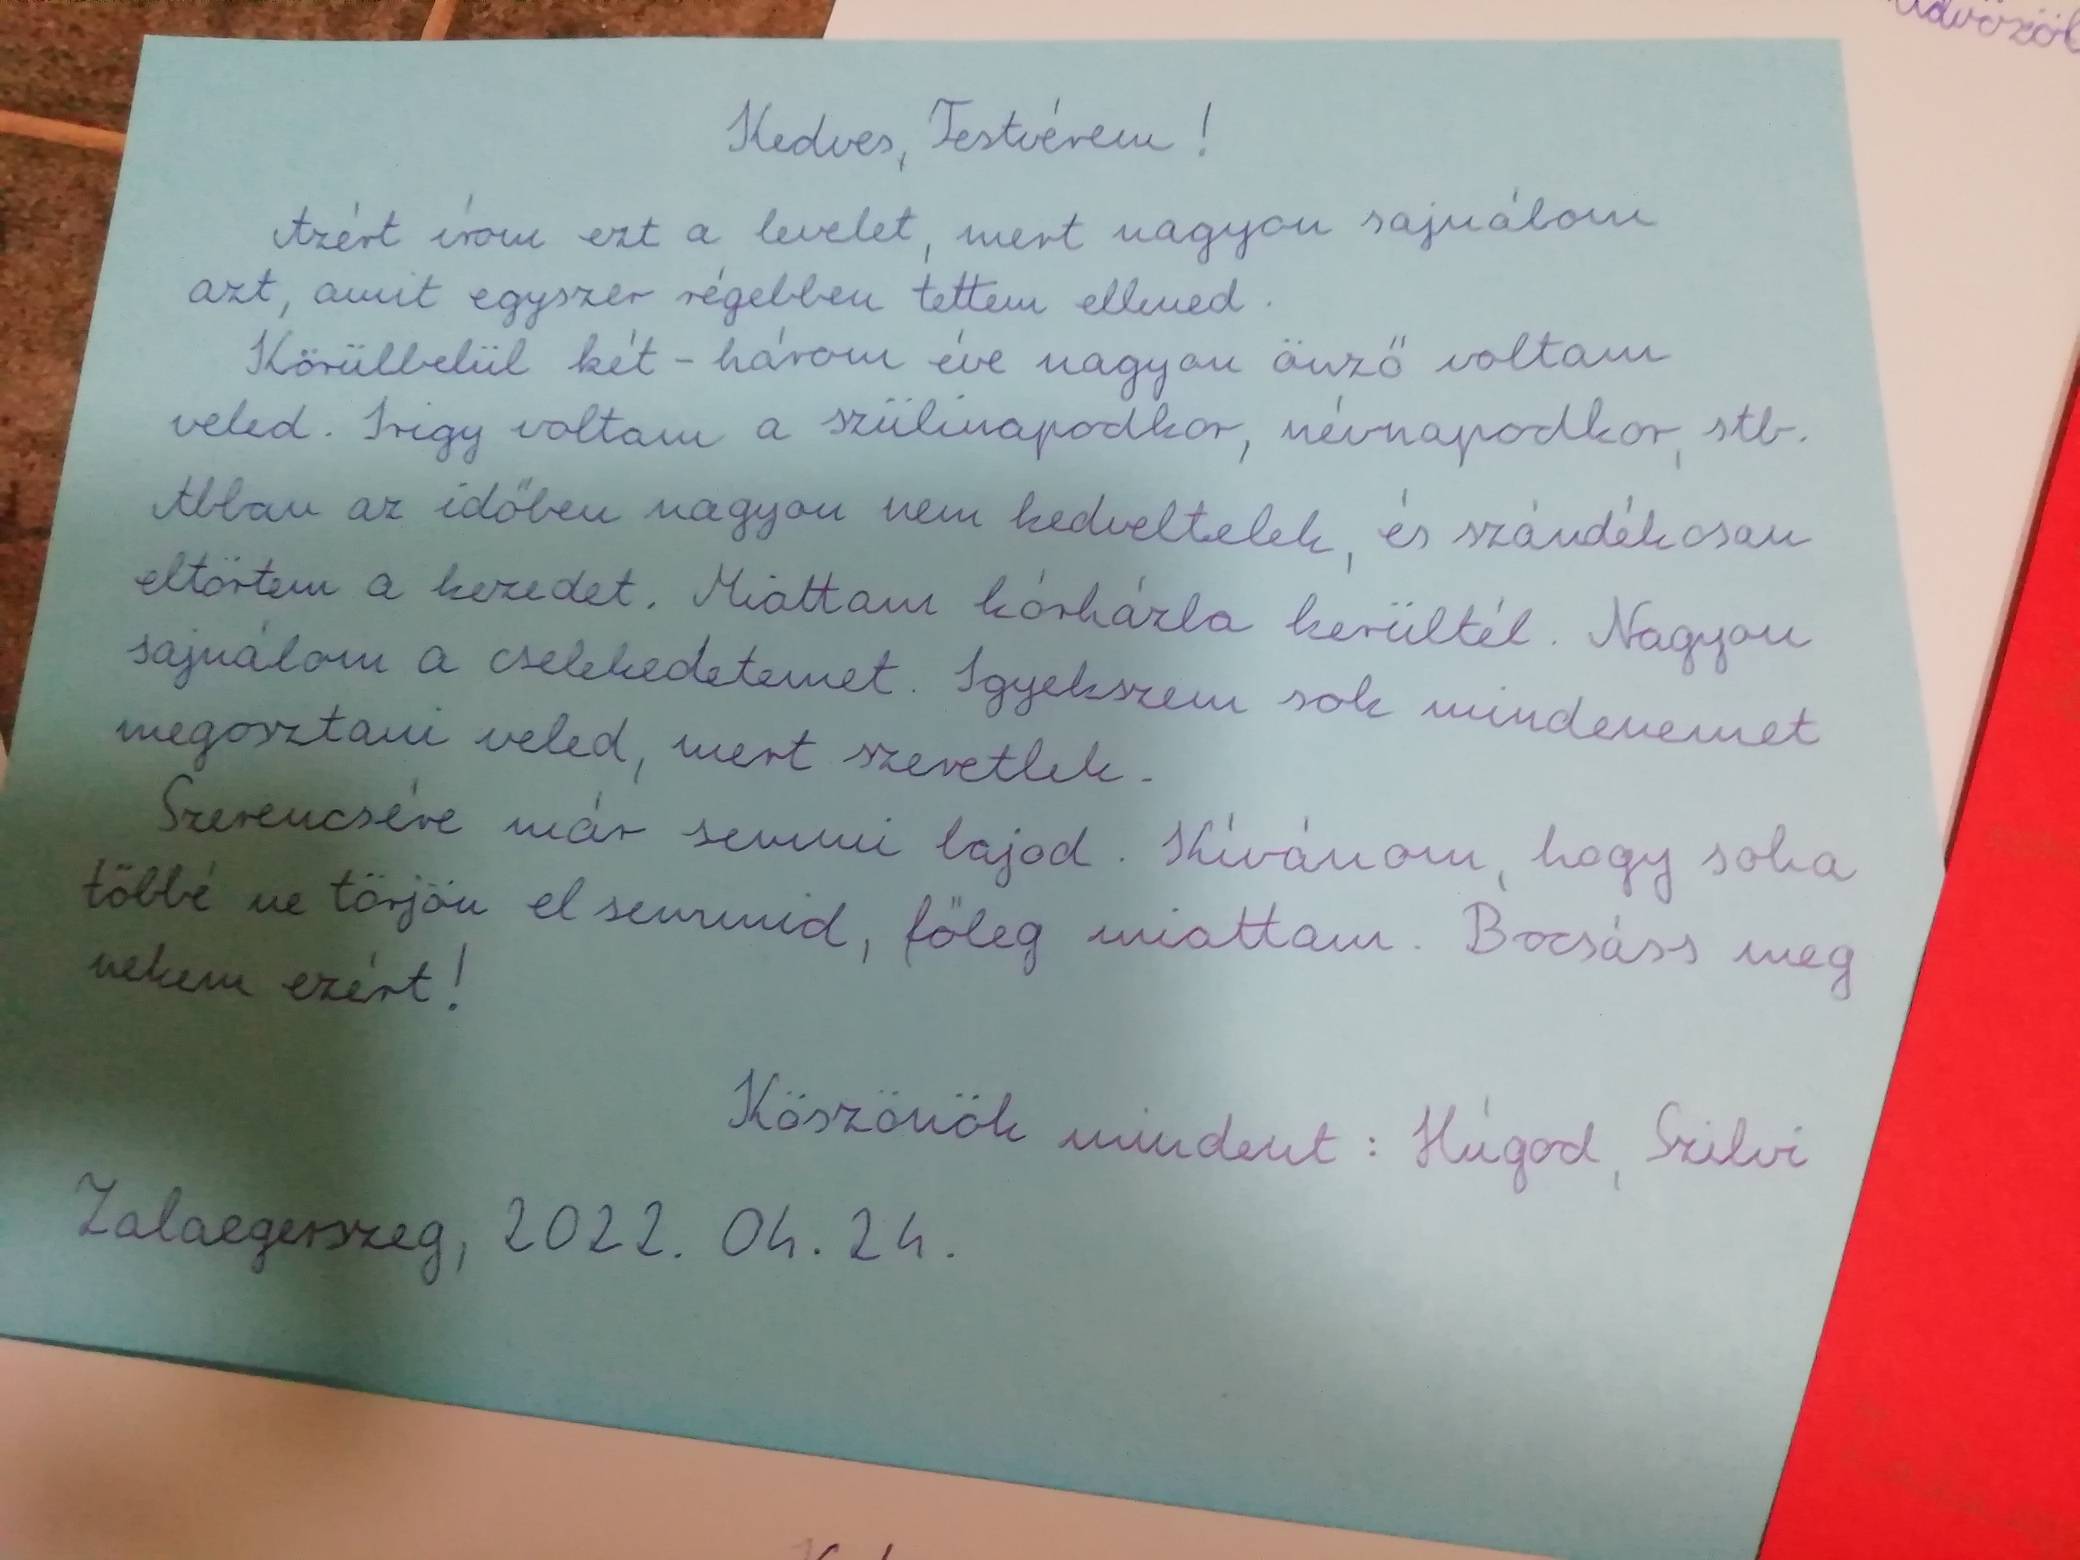 Üdvözöl
Kedves, Testvérem!
Azért írom ezt a levelet, mert nagyon sajnálom
azt, amit egyszer régebben tettem ellened.
Körülbelül két-három éve nagyon önző voltam
veled. Irigy voltam a szülinapodkor, névnapodkor, stb.
Abban az időben nagyon nem kedveltelek, és szándékosan
eltörtem a kezedet. Miattam kórházba kerültél. Nagyon
sajnálom a cselekedetemet. Igyekszem sok mindenemet
megosztani veled, mert szeretlek.
Szerencsére már semmi bajod. Kívánom, hogy soha
többé ne törjön el semmid, főleg miattam. Bocsáss meg
nekem ezért!
Köszönök mindent: Húgod, Szilvi
Zalaegerszeg, 2022. 04. 24.